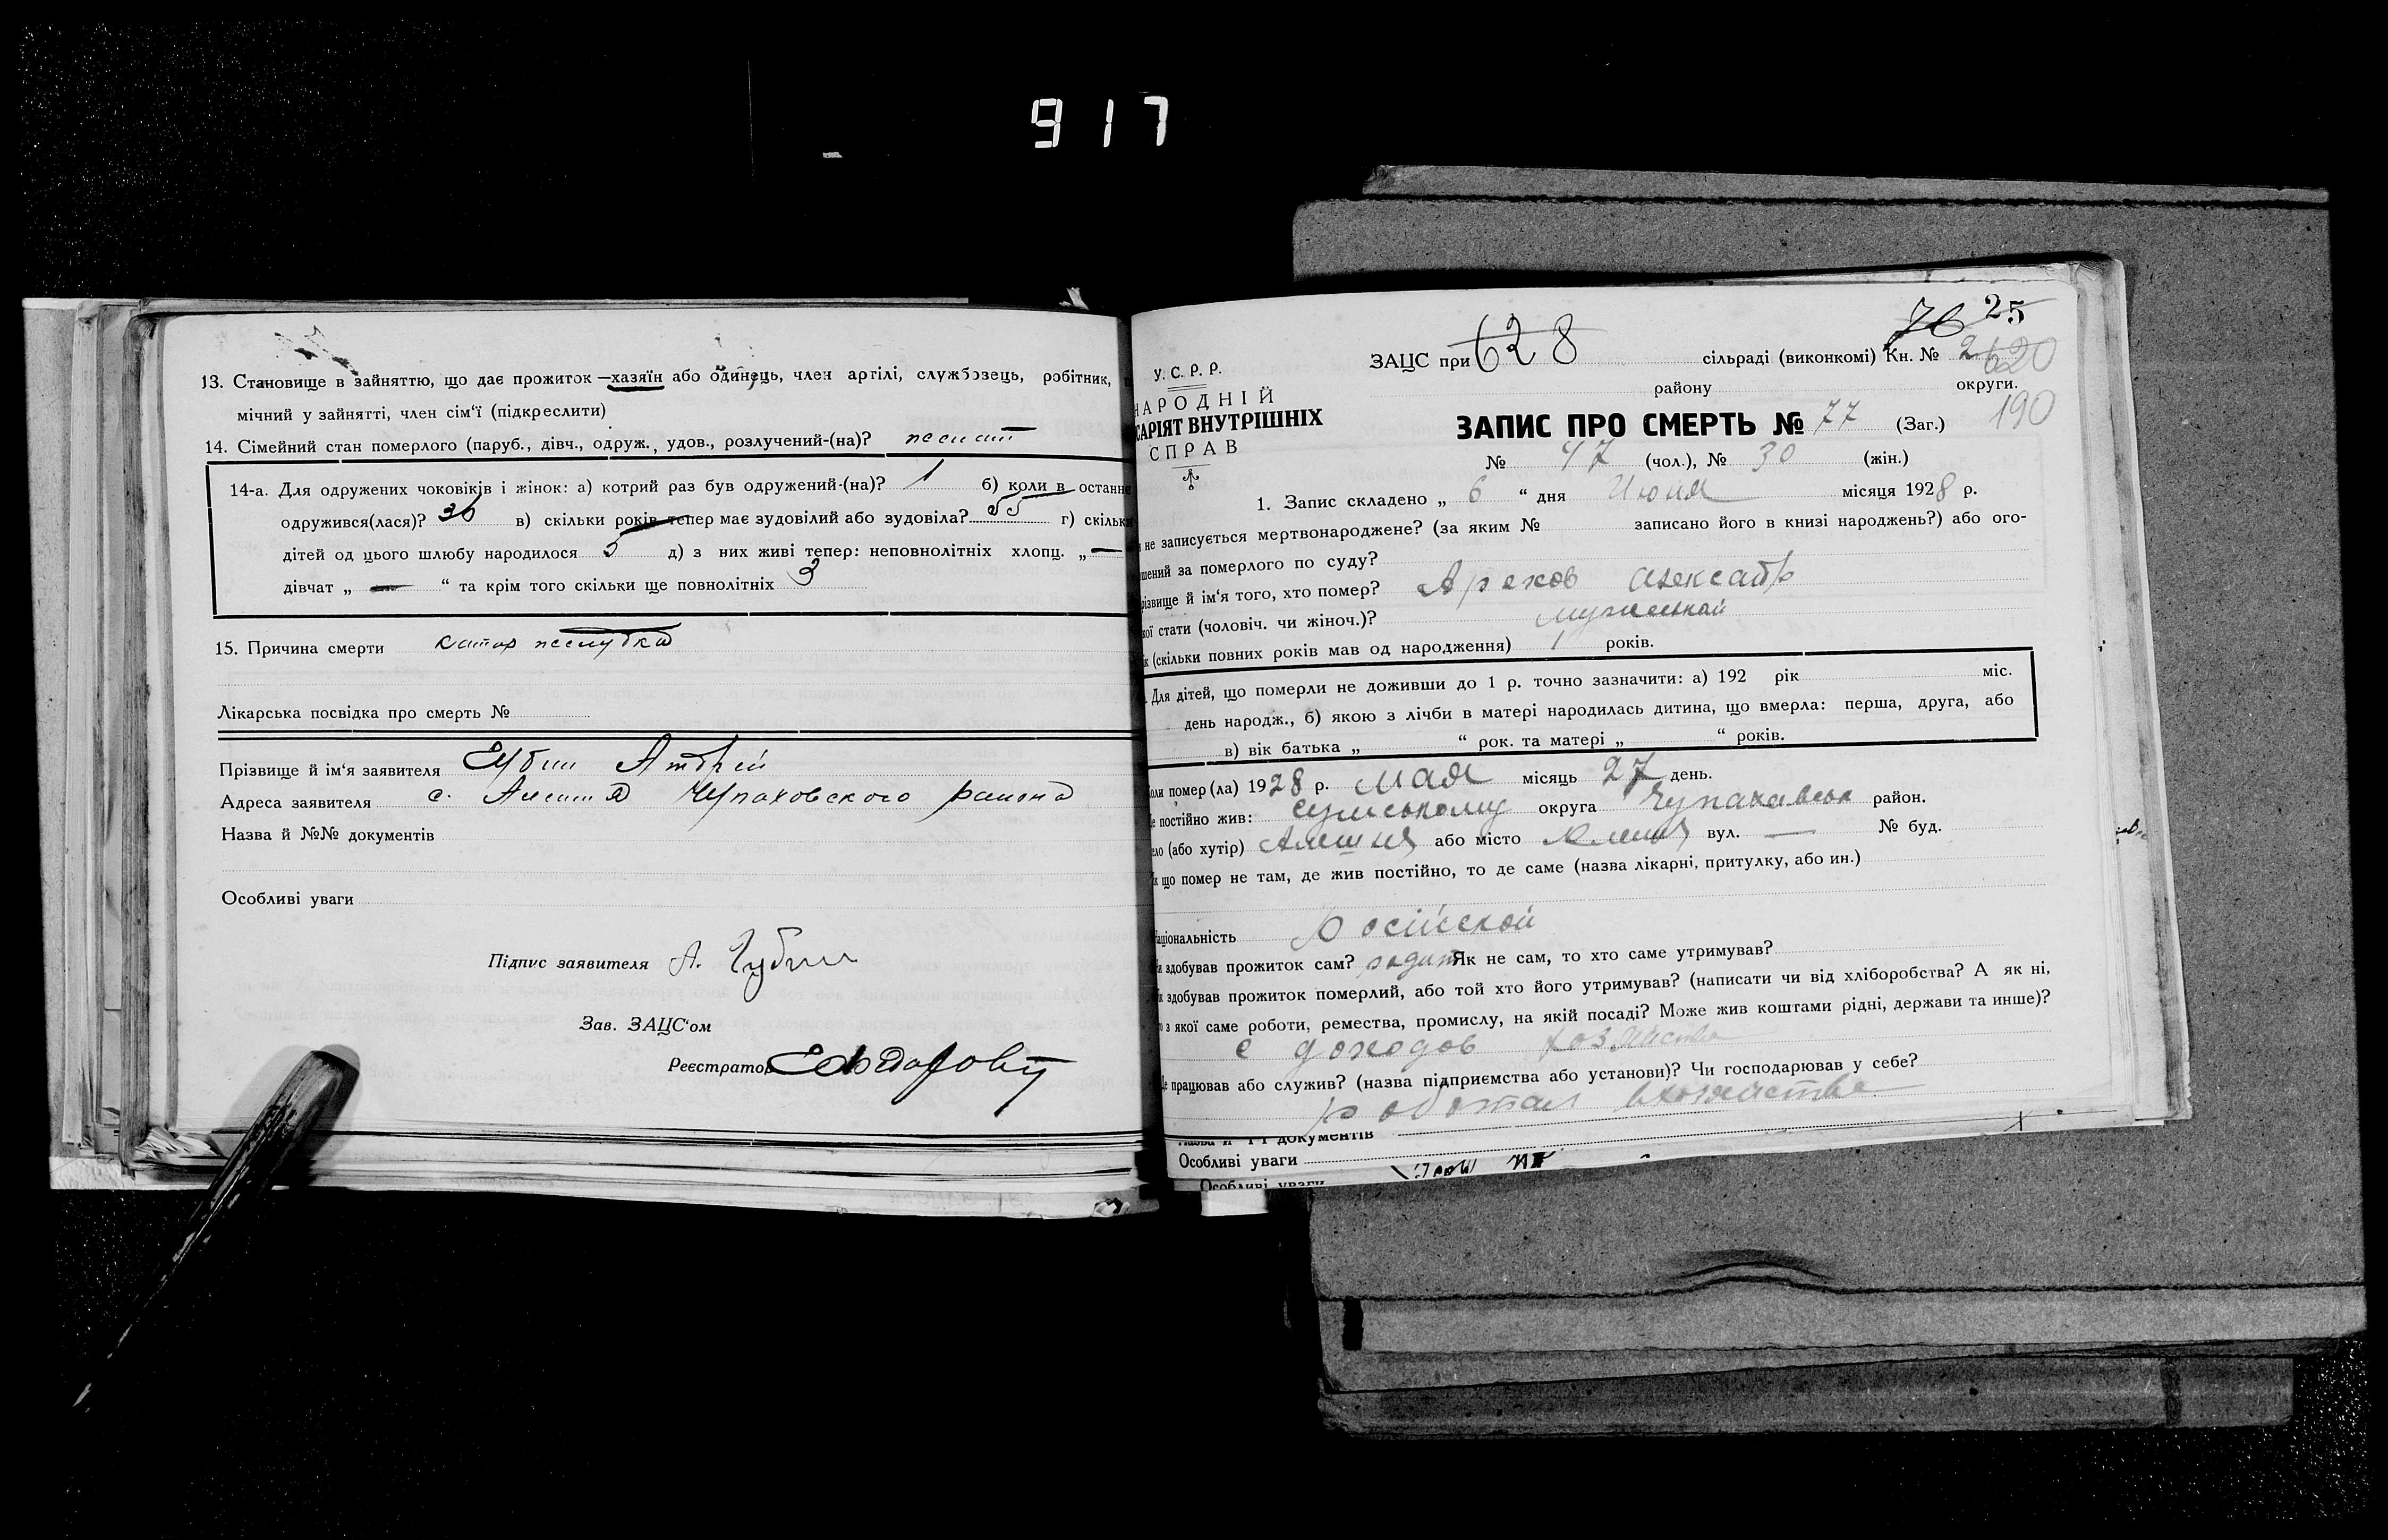 917
13. Становище в зайняттю, що дає прожиток — хазяїн або одинець, член артілі, службовець, робітник,
мічний у зайнятті, член сім'ї (підкреслити)
14. Сімейний стан померлого (паруб., дівч., одруж., удов., розлучений-(на)?
14-а. Для одружених чоковіків і жінок: а) котрий раз був одружений-(на)? 1 б) коли в останнє
одружився(лася)? в) скільки років тепер має зудовілий або зудовіла? 55 г) скільки
дітей од цього шлюбу народилося 5 д) з них живі тепер: неповнолітніх хлопц. „ —
дівчат „ — “ та крім того скільки ще повнолітніх 3
15. Причина смерти катар желудка
Лікарська посвідка про смерть №
Прізвище й ім'я заявителя
Адреса заявителя с. района
Назва й №№ документів
Особливі уваги
Підпис заявителя А. Губин
Зав. ЗАЦС'ом
Реєстратор
76 25
У. С. Р. Р.
НАРОДНІЙ
САРІЯТ ВНУТРІШНІХ
СПРАВ
ЗАЦС при 628 сільраді (виконкомі) Кн. № 2 620
району округи.
190
ЗАПИС ПРО СМЕРТЬ № 77 (Заг.)
№ 47 (чол.), № 30 (жін.)
1. Запис складено „ 6 “ дня Июня місяця 1928 р.
не записується мертвонароджене? (за яким № записано його в книзі народжень?) або ого-
шений за померлого по суду?
різвище й ім'я того, хто помер? Арехов Александр
кої стати (чоловіч. чи жіноч.)? мужеськай
к (скільки повних років мав од народження) 1 років.
Для дітей, що померли не доживши до 1 р. точно зазначити: а) 192 рік міс.
день народж., б) якою з лічби в матері народилась дитина, що вмерла: перша, друга, або
в) вік батька „ “ рок. та матері „ “ років.
оли помер (ла) 1928 р. мая місяць 27 день.
е постійно жив: Сумському округа Чупахавськ район.
ело (або хутір) Алешня або місто вул. — № буд.
к що помер не там, де жив постійно, то де саме (назва лікарні, притулку, або ин.)
аціональність Російской
и здобував прожиток сам? Як не сам, то хто саме утримував?
к здобував прожиток померлий, або той хто його утримував? (написати чи від хліборобства? А як ні,
о з якої саме роботи, ремества, промислу, на якій посаді? Може жив коштами рідні, держави та инше)?
с доходов хозяйства
е працював або служив? (назва підприємства або установи)? Чи господарював у себе?
работал вхозяйстве
документів
Особливі уваги
Особливі уваги